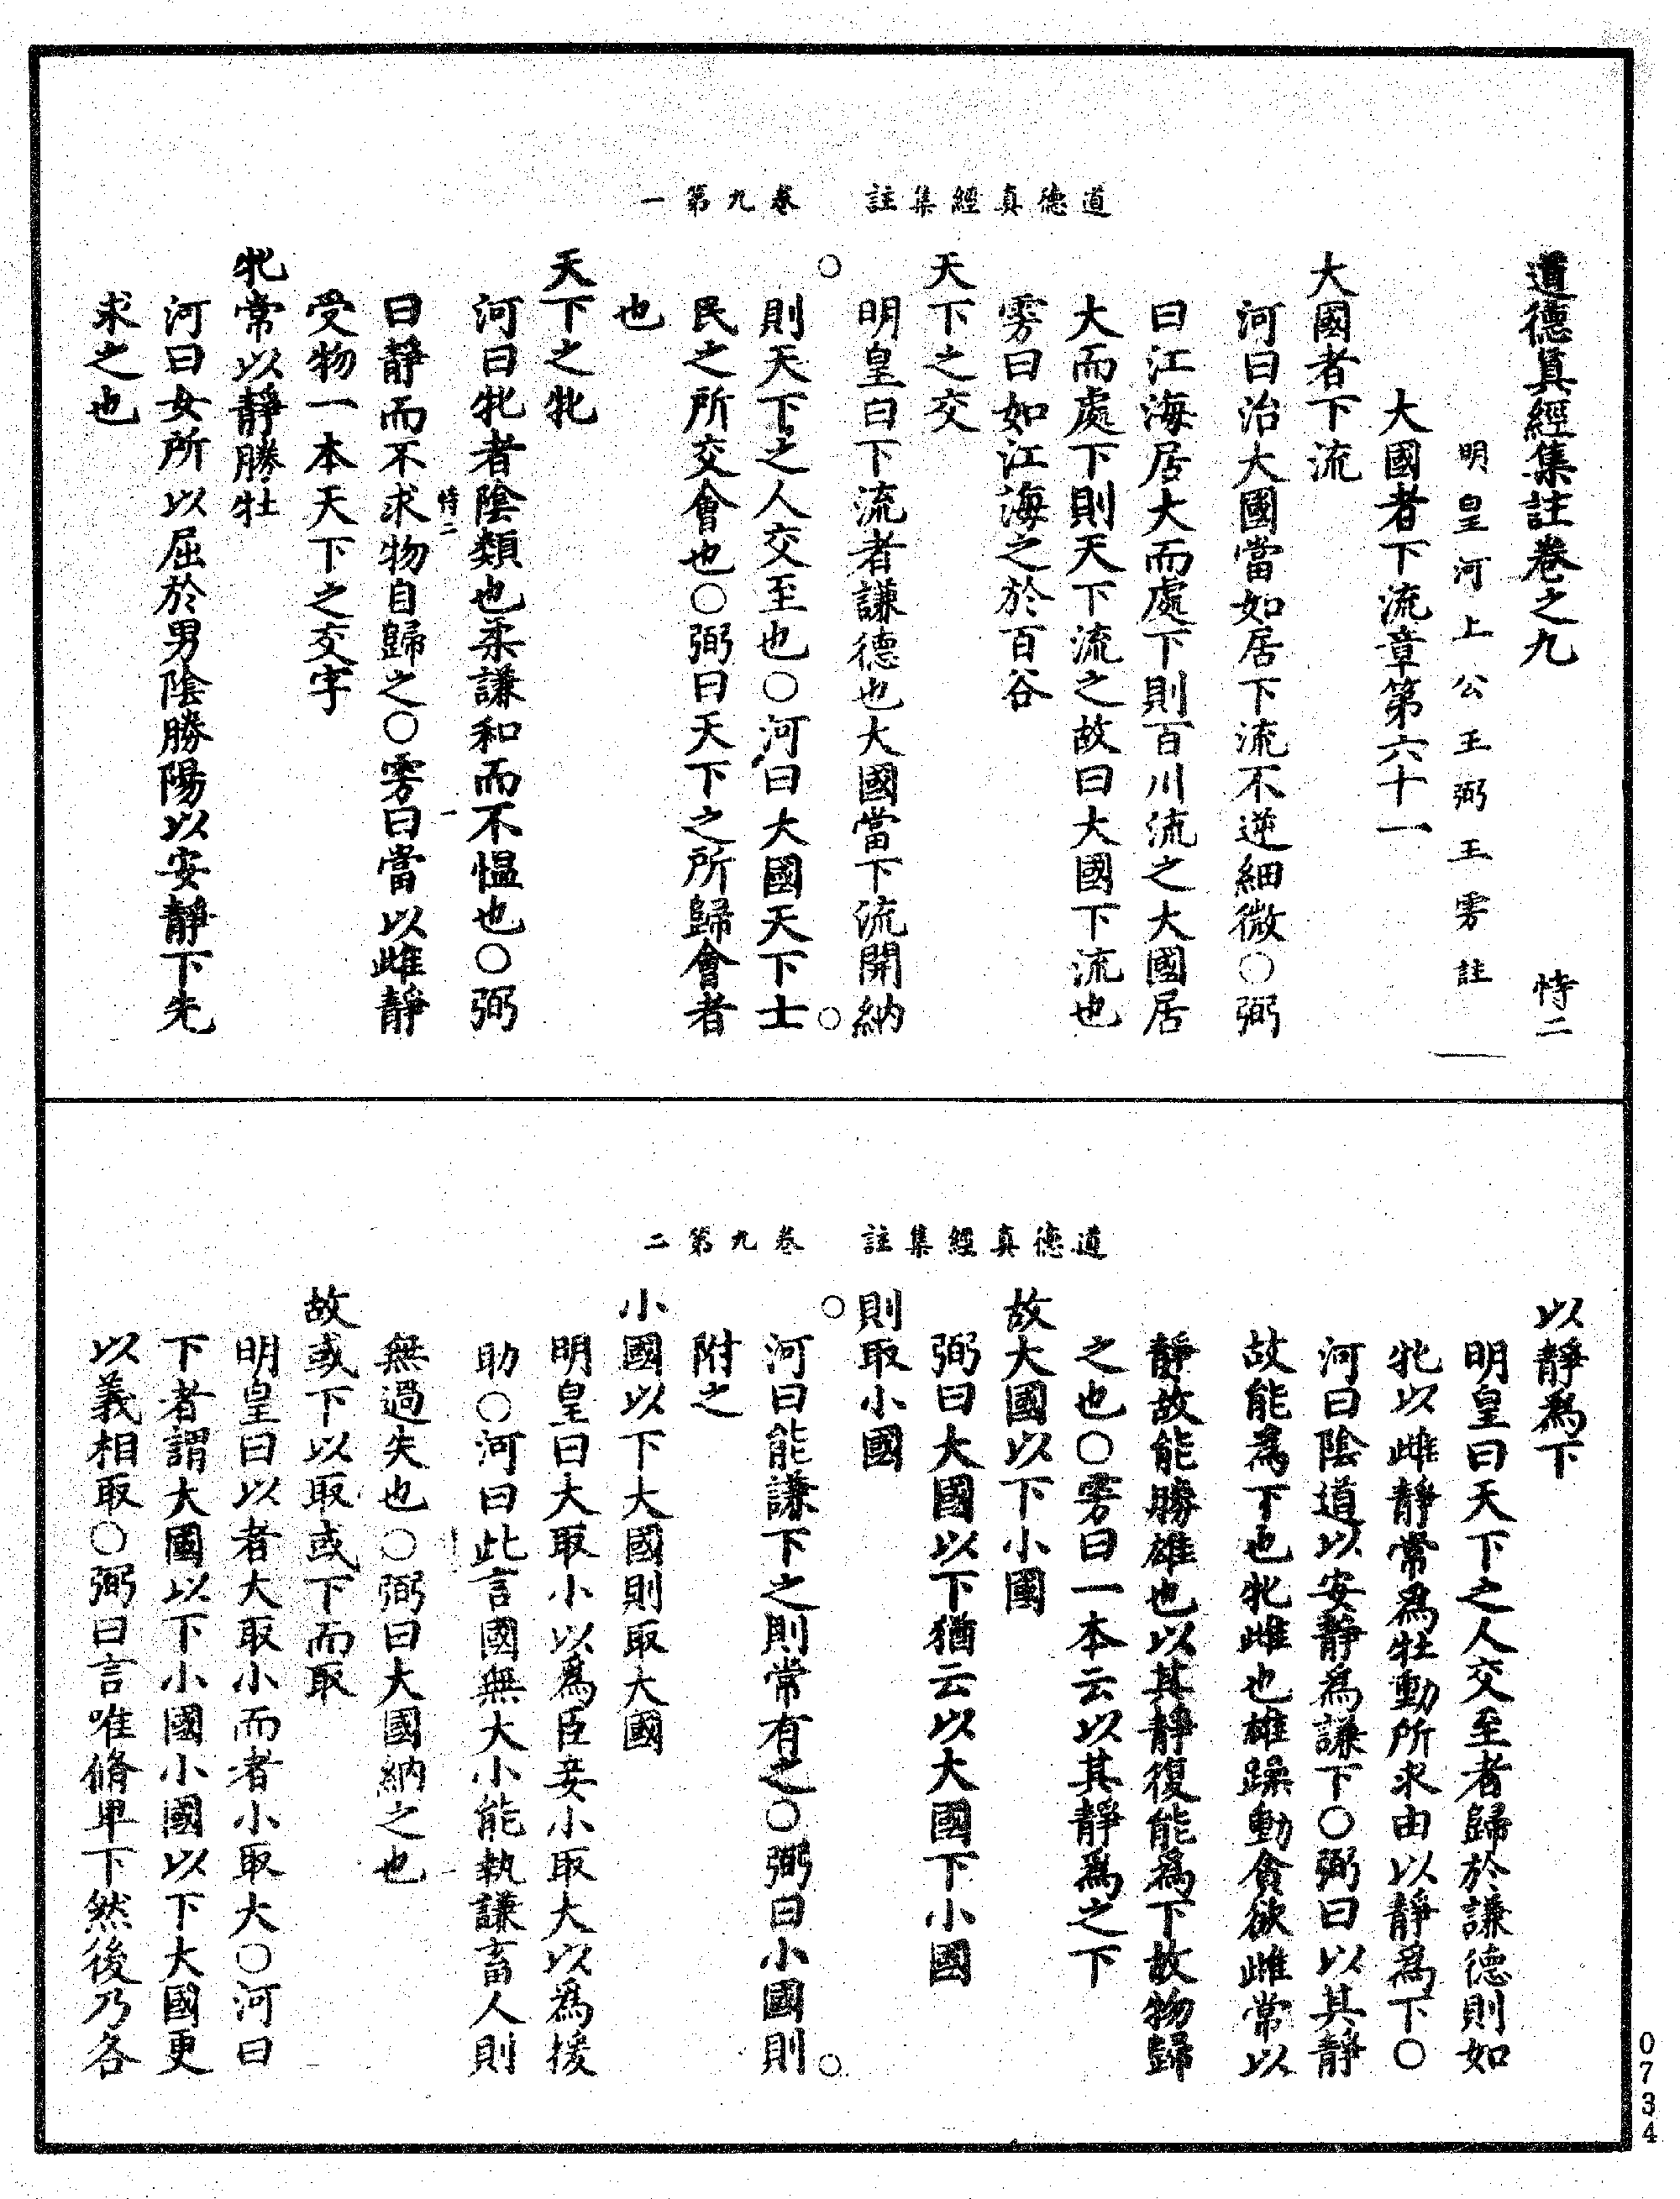 道德真經集註　卷九第一
道德真經集註卷之九　恃二
明皇河上公王弼王雱註
大國者下流章第六十一
大國者下流
河曰治大國當如居下流不逆細微○弼
曰江海居大而處下則百川流之大國居
大而處下則天下流之故曰大國下流也
雱曰如江海之於百谷
天下之交
明皇曰下流者謙德也大國當下流開納
○　○
則天下之人交至也○河曰大國天下士
民之所交會也○弼曰天下之所歸會者
也
天下之牝
河曰牝者陰類也柔謙和而不愠也○弼
恃二　一
曰靜而不求物自歸之○雱曰當以雌靜
受物一本天下之交字
牝常以靜勝牡
河曰女所以屈於男陰勝陽以安靜下先
求之也
道德真經集註　卷九第二
以靜為下
明皇曰天下之人交至者歸於謙德則如
牝以雌靜常為牡動所求由以靜為下○
河曰陰道以安靜為謙下○弼曰以其靜
故能為下也牝雌也雄躁動貪欲雌常以
靜故能勝雄也以其靜復能為下故物歸
之也○雱曰一本云以其靜為之下
故大國以下小國
弼曰大國以下猶云以大國下小國
則取小國
○　○
河曰能謙下之則常有之○弼曰小國則
附之
小國以下大國則取大國
明皇曰大取小以為臣妾小取大以為援
助○河曰此言國無大小能執謙畜人則
無過失也○弼曰大國納之也
故或下以取或下而取
明皇曰以者大取小而者小取大○河曰
下者謂大國以下小國小國以下大國更
以義相取○弼曰言唯脩卑下然後乃各
0734